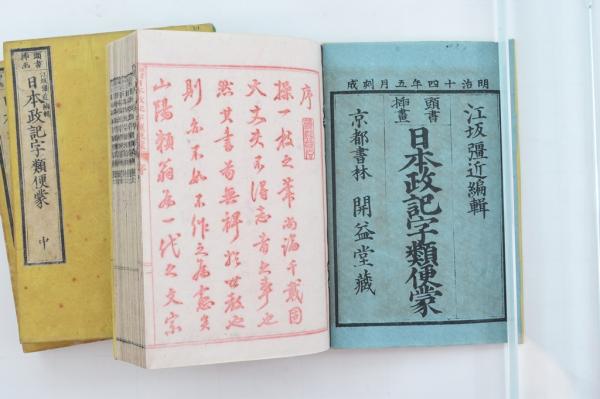 明治十四年五月刻成
江坂彊近編輯
頭書
挿畫
日本政記字類便蒙
京都書林 開益堂藏
序
操一枝之筆尚論千載固
大丈夫不得志者之事也
然其書苟無裨於世教也
則亦不如不作之為愈矣
山陽頼翁為一代之文宗
頭書
挿画
江坂彊近編輯
日本政記字類便蒙
中